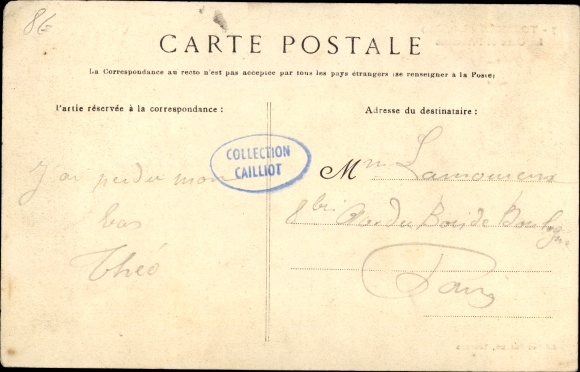 86
CARTE POSTALE
La Correspondance au recto n'est pas acceptée par tous les pays étrangers (se renseigner à la Poste)
Partie réservée à la correspondance :
Adresse du destinataire :
COLLECTION
CAILLIOT
J'ai perdu mon
bas
Théo
Mme
8 bis Rue du Bois de Boulogne
Paris